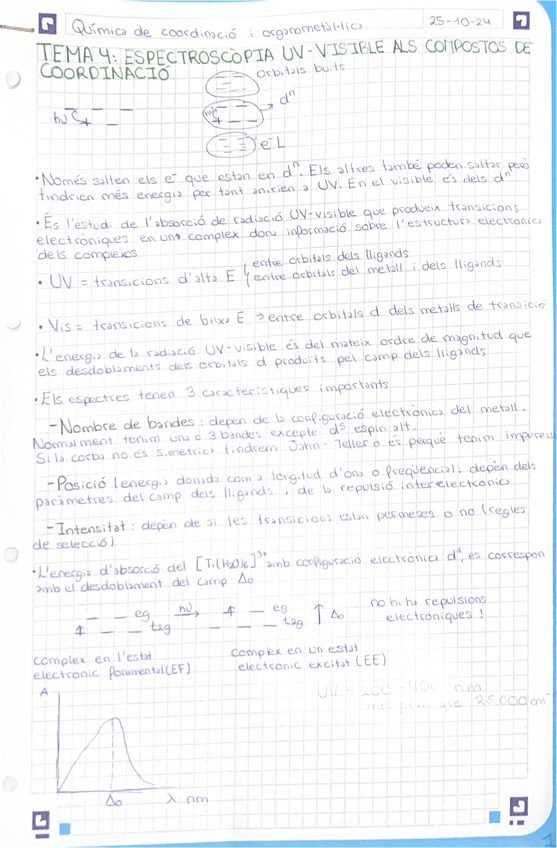 Química de coordinació i organometàl·lica
25-10-24
TEMA 4: ESPECTROSCÒPIA UV-VISIBLE ALS COMPOSTOS DE
COORDINACIÓ
orbitals buits
hν
hν
dⁿ
e⁻L
• Només salten els e⁻ que estan en dⁿ. Els altres també poden saltar però
tindrien més energia per tant anirien a UV. En el visible és dels dⁿ
• És l'estudi de l'absorció de radiació UV-visible que produeix transicions
electròniques en un complex dona informació sobre l'estructura electrònica
dels complexos
• UV = transicions d'alta E entre orbitals dels lligands
entre orbitals del metall i dels lligands
• Vis = transicions de baixa E → entre orbitals d dels metalls de transició
• L'energia de la radiació UV-visible és del mateix ordre de magnitud que
els desdoblaments dels orbitals d produïts pel camp dels lligands
• Els espectres tenen 3 característiques importants
- Nombre de bandes: depèn de la configuració electrònica del metall.
Normalment tenim una o 3 bandes excepte d⁵ espín alt.
Si la corba no és simètrica tindrem John-Teller o és perquè tenim impureses
- Posició (energia donada com a longitud d'ona o freqüència). depèn dels
paràmetres del camp dels lligands i de la repulsió interelectrònica
- Intensitat: depèn de si les transicions estan permeses o no (regles
de selecció)
• L'energia d'absorció del [Ti(H₂O)₆]³⁺ amb configuració electrònica d¹, es correspon
amb el desdoblament del camp Δo
eg hν eg
t2g t2g Δo
no hi ha repulsions
electròniques!
complex en l'estat
electrònic fonamental (EF)
complex en un estat
electrònic excitat (EE)
UV = 200-400 nm
que 25.000 cm⁻
A
Δo
λ nm
1